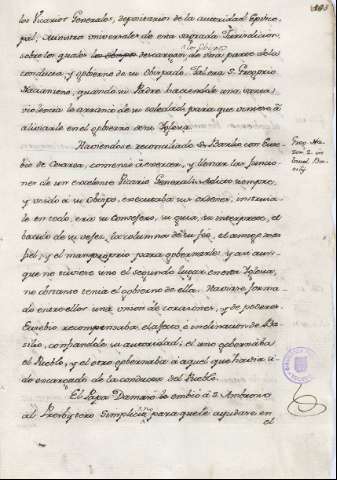 los Vicarios Generales, depositarios de la autoridad Episco-
pal, Ministros universales de esta sagrada Jurisdiccion
sobre los quales los Obispos descargan de una parte de la
conducta, y gobierno de su Obispado. Tal era S. Gregorio
Nazianzeno, quando su Padre haciendole una
violencia le arrancó de su soledad, para que viniese á
aliviarle en el gobierno de su Iglesia.
Haviendose reconciliado S. Basilio con Euse-
bio de Cesarea, comenzó á exercer, y llenar las funcio-
nes de un excelente Vicario General:
y unido a su Obispo, executaba sus ordenes, instruia-
le en todo, era su Consejero, su guia, su interprete, el
baculo de su vejez, la columna de su fee, el amigo mas
fiel, y el mas propio para gobernarle; y asi aun-
que no tuviese sino el segundo lugar en esta Iglesia,
no obstante tenia el gobierno de ella. Haviase forma-
do entre ellos una union de corazones, y de poderes.
Eusebio recompensaba el afecto, e inclinacion de Ba-
silio, confiandole su autoridad, el uno gobernaba
el Pueblo, y el otro gobernaba á aquel que havia si-
do encargado de la conducta del Pueblo.
El Papa Damaso embió á S. Ambrosio
al Presbytero Simpliciano para que le ayudase en
el